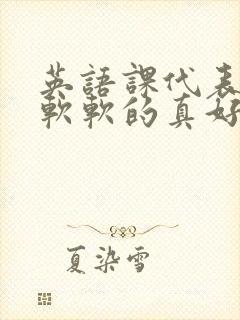 英語課代表
軟軟的真好
夏染雪